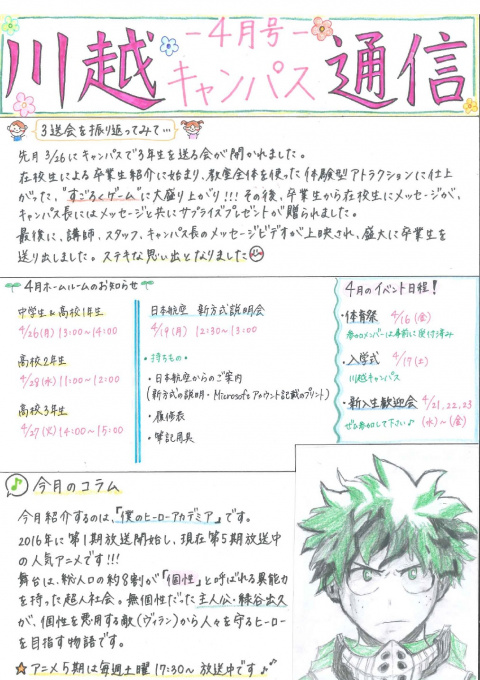 -4月号-
川越キャンパス通信
3送会を振り返ってみて…
先月3/26にキャンパスで3年生を送る会が開かれました。
在校生による卒業生紹介に始まり、教室全体を使った体験型アトラクションに仕上
がった、"すごろくゲーム"に大盛り上がり!!!その後、卒業生から在校生にメッセージが、
キャンパス長にはメッセージと共にサプライズプレゼントが贈られました。
最後に、講師、スタッフ、キャンパス長のメッセージビデオが上映され、盛大に卒業生を
送り出しました。ステキな思い出となりました
4月ホームルームのお知らせ
中学生&高校1年生
4/26(月) 13:00~14:00
高校2年生
4/28(水) 11:00~12:00
高校3年生
4/27(火) 14:00~15:00
日本航空 新方式説明会
4/19(月) 12:30~13:00
・持ちもの・
・日本航空からのご案内
(新方式の説明・Microsoftアカウント記載のプリント)
・履修表
・筆記用具
4月のイベント日程!
・体育祭 4/16(金)
参加メンバーは事前に受付済み
・入学式 4/17(土)
川越キャンパス
・新入生歓迎会 4/21,22,23
ぜひ参加して下さい♪ (水)~(金)
今月のコラム
今月紹介するのは、「僕のヒーローアカデミア」です。
2016年に第1期放送開始し、現在第5期放送中
の人気アニメです!!!
舞台は、総人口の約8割が「個性」と呼ばれる異能力
を持った超人社会。無個性だった主人公・緑谷出久
が、個性を悪用する敵(ヴィラン)から人々を守るヒーロー
を目指す物語です。
★アニメ5期は毎週土曜17:30~放送中です♪♪